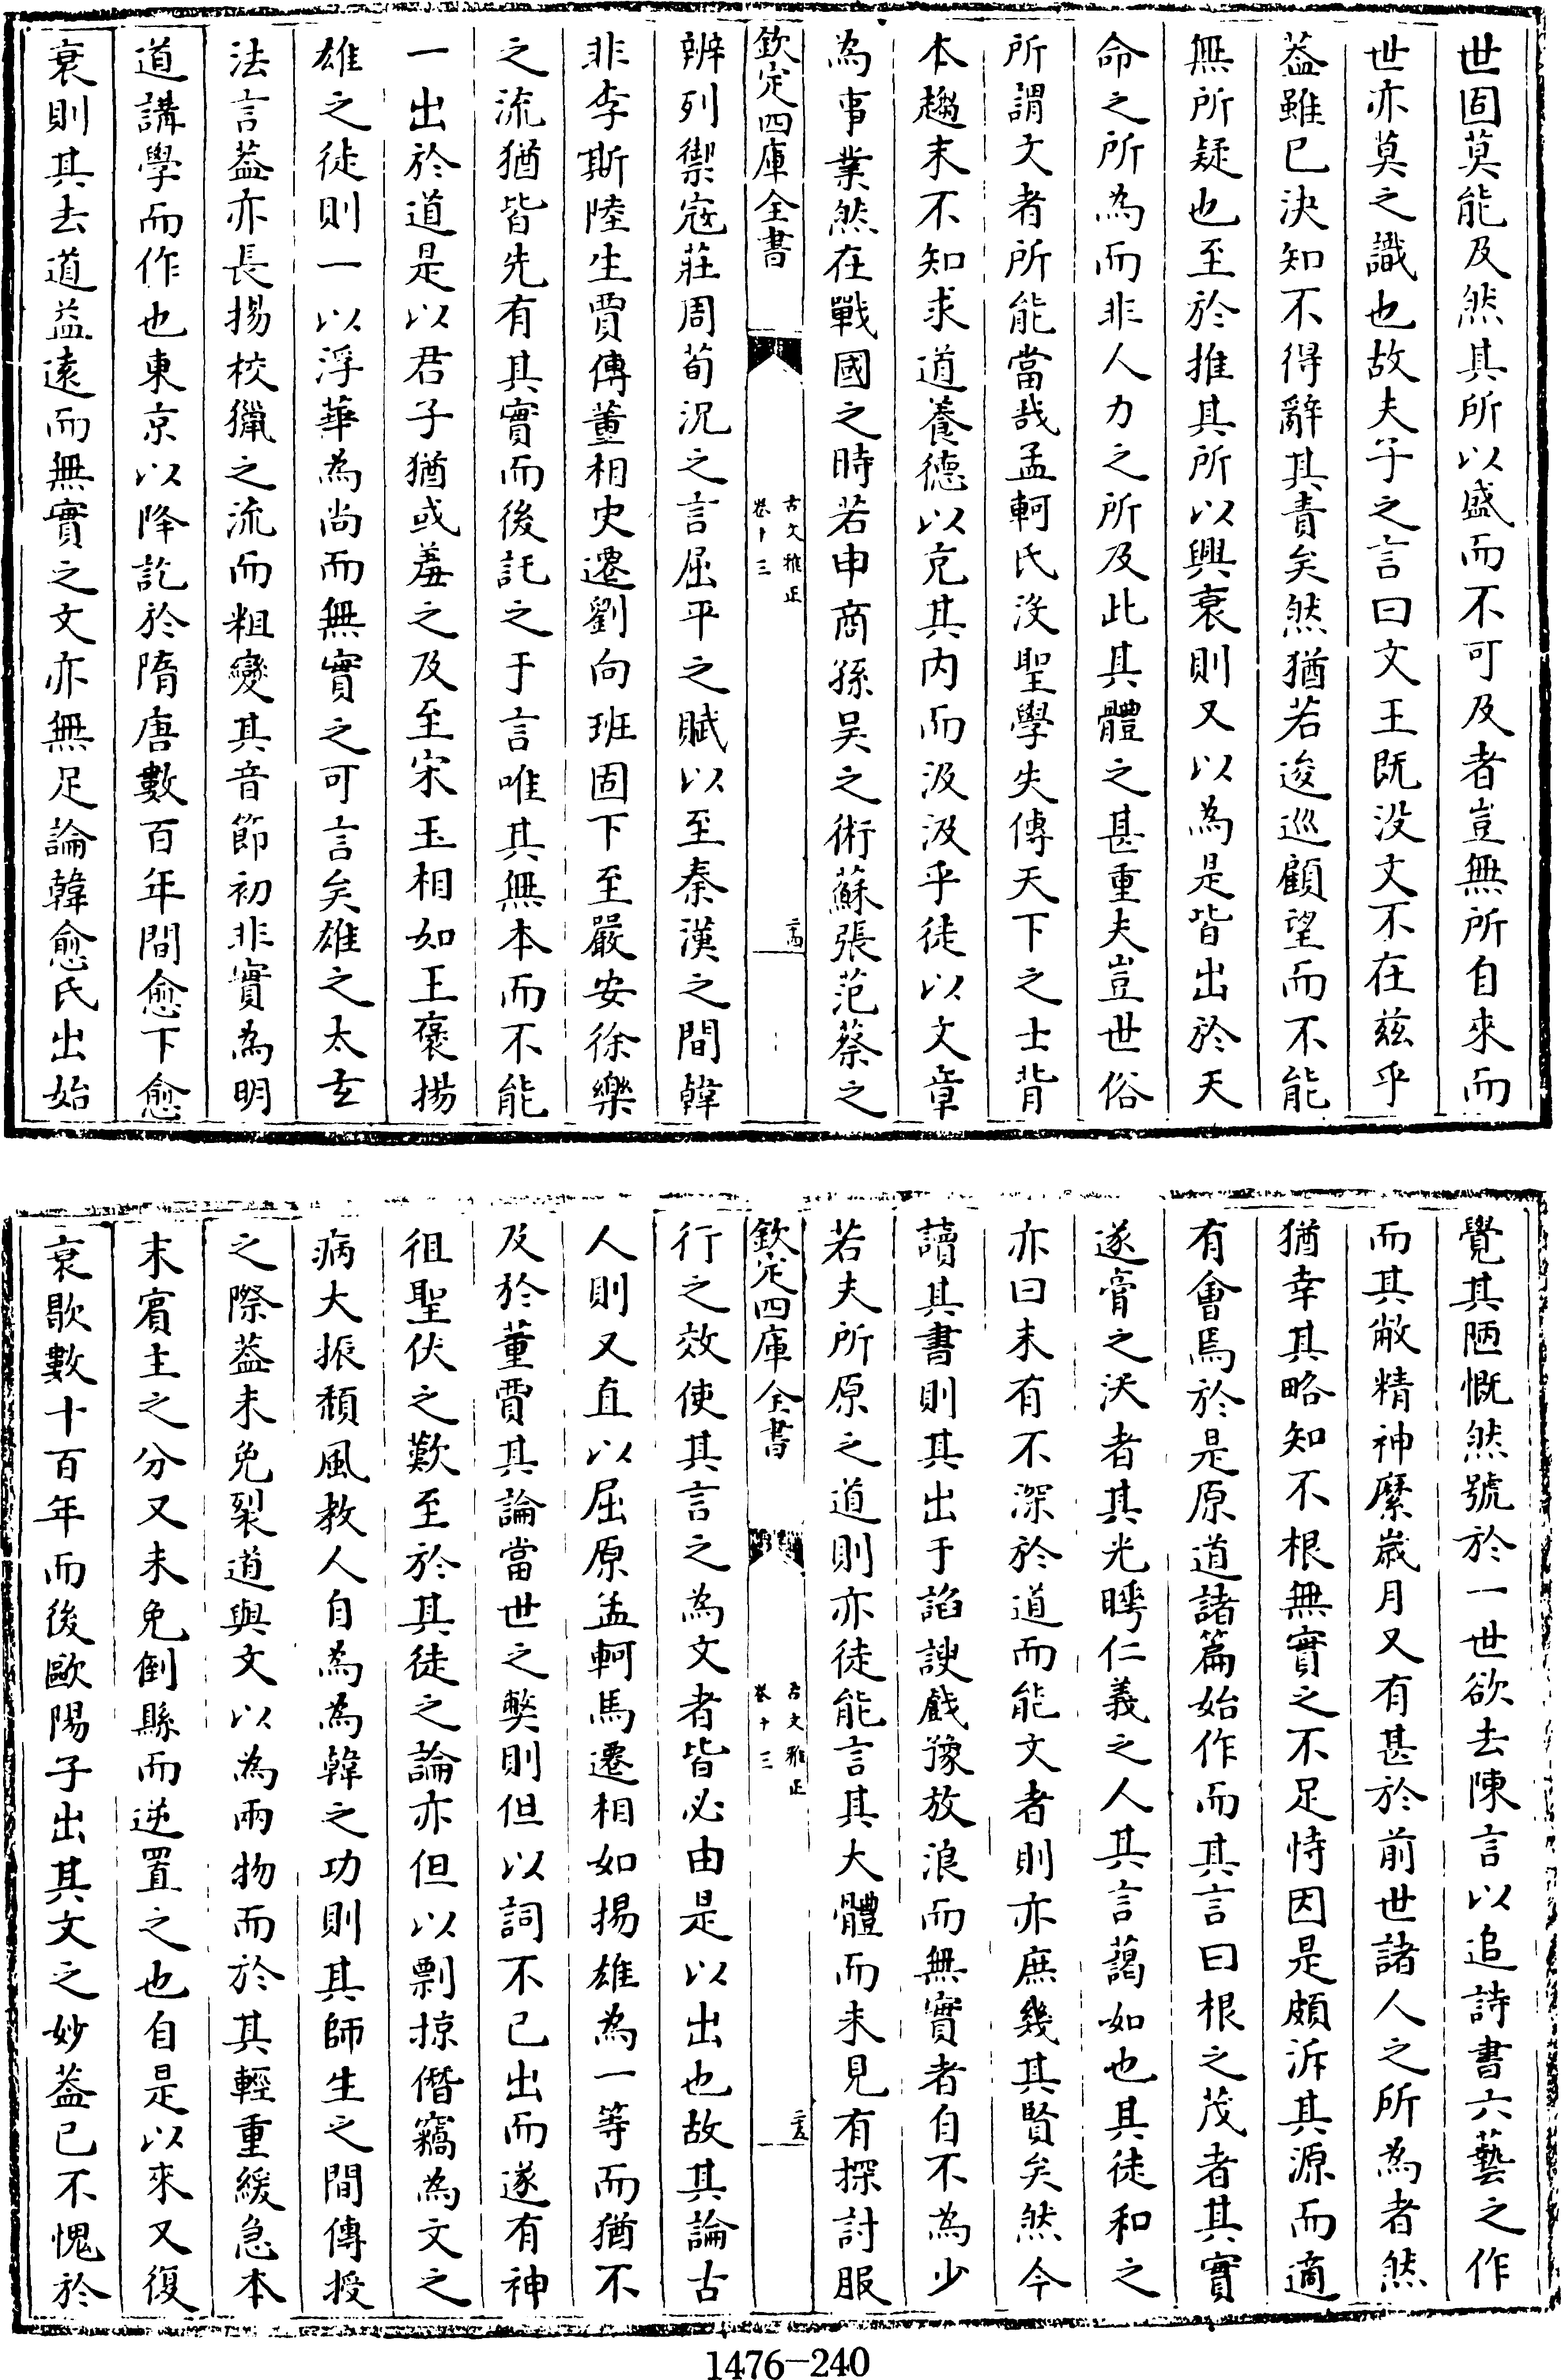 世固莫能及然其所以盛而不可及者豈無所自來而
世亦莫之識也故夫子之言曰文王既没文不在兹乎
葢雖已決知不得辭其責矣然猶若逡巡顧望而不能
無所疑也至於推其所以興衰則又以為是皆出於天
命之所為而非人力之所及此其體之甚重夫豈世俗
所謂文者所能當哉孟軻氏沒聖學失傳天下之士背
本趨末不知求道養德以充其内而汲汲乎徒以文章
為事業然在戰國之時若申商孫吴之術蘇張范蔡之
欽定四庫全書
古文雅正
卷十三
辨列禦寇莊周荀況之言屈平之賦以至秦漢之間韓
非李斯陸生賈傅董相史遷劉向班固下至嚴安徐樂
之流猶皆先有其實而後託之于言唯其無本而不能
一出於道是以君子猶或羞之及至宋玉相如王褒揚
雄之徒則一以浮華為尚而無實之可言矣雄之太𤣥
法言葢亦長揚校獵之流而粗變其音節初非實為明
道講學而作也東京以降訖於隋唐數百年間愈下愈
衰則其去道益遠而無實之文亦無足論韓愈氏出始
覺其陋慨然號於一世欲去陳言以追詩書六藝之作
而其敝精神縻歲月又有甚於前世諸人之所為者然
猶幸其略知不根無實之不足恃因是頗泝其源而適
有會焉於是原道諸篇始作而其言曰根之茂者其實
遂膏之沃者其光曄仁義之人其言藹如也其徒和之
亦曰未有不深於道而能文者則亦庶幾其賢矣然今
讀其書則其出于諂諛戲豫放浪而無實者自不為少
若夫所原之道則亦徒能言其大體而未見有探討服
欽定四庫全書
古文雅正
卷十三
行之效使其言之為文者皆必由是以出也故其論古
人則又直以屈原孟軻馬遷相如揚雄為一等而猶不
及於董賈其論當世之弊則但以詞不已出而遂有神
徂聖伏之歎至於其徒之論亦但以剽掠僭竊為文之
病大振頽風教人自為為韓之功則其師生之間傳授
之際葢未免裂道與文以為兩物而於其輕重緩急本
末賓主之分又未免倒縣而逆置之也自是以來又復
衰歇數十百年而後歐陽子出其文之妙葢已不愧於
1476-240